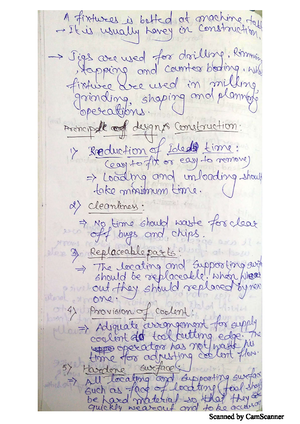 A fixtures is bolted at machine table
- It is usually heavy or construction
→ Jigs are used for drilling, Reaming
tapping and counter boding. while
fixture are used in milling,
grinding, shaping and planning
operations.
Principal of design & Construction:
1) Reduction of Idle time:
(easy to fit or easy to remove)
⇒ Loading and unloading should
take minimum time.
2) Cleanness:
⇒ No time should waste for clear
off bugs and chips.
3) Replaceable parts:
⇒ The locating and supporting
should be replaceable. When
out they should replaced by new
one.
4) Provision of Coolent:
⇒ Adiquate arrangement for supply
coolent to tool cutting edge. The
operator has not past
time for adjusting coolent flow.
5) Hardone Surfaces
⇒ All locating and supporting surfaces
such as face of locating
be hard material so that they
quickly wear out and
Scanned by CamScanner